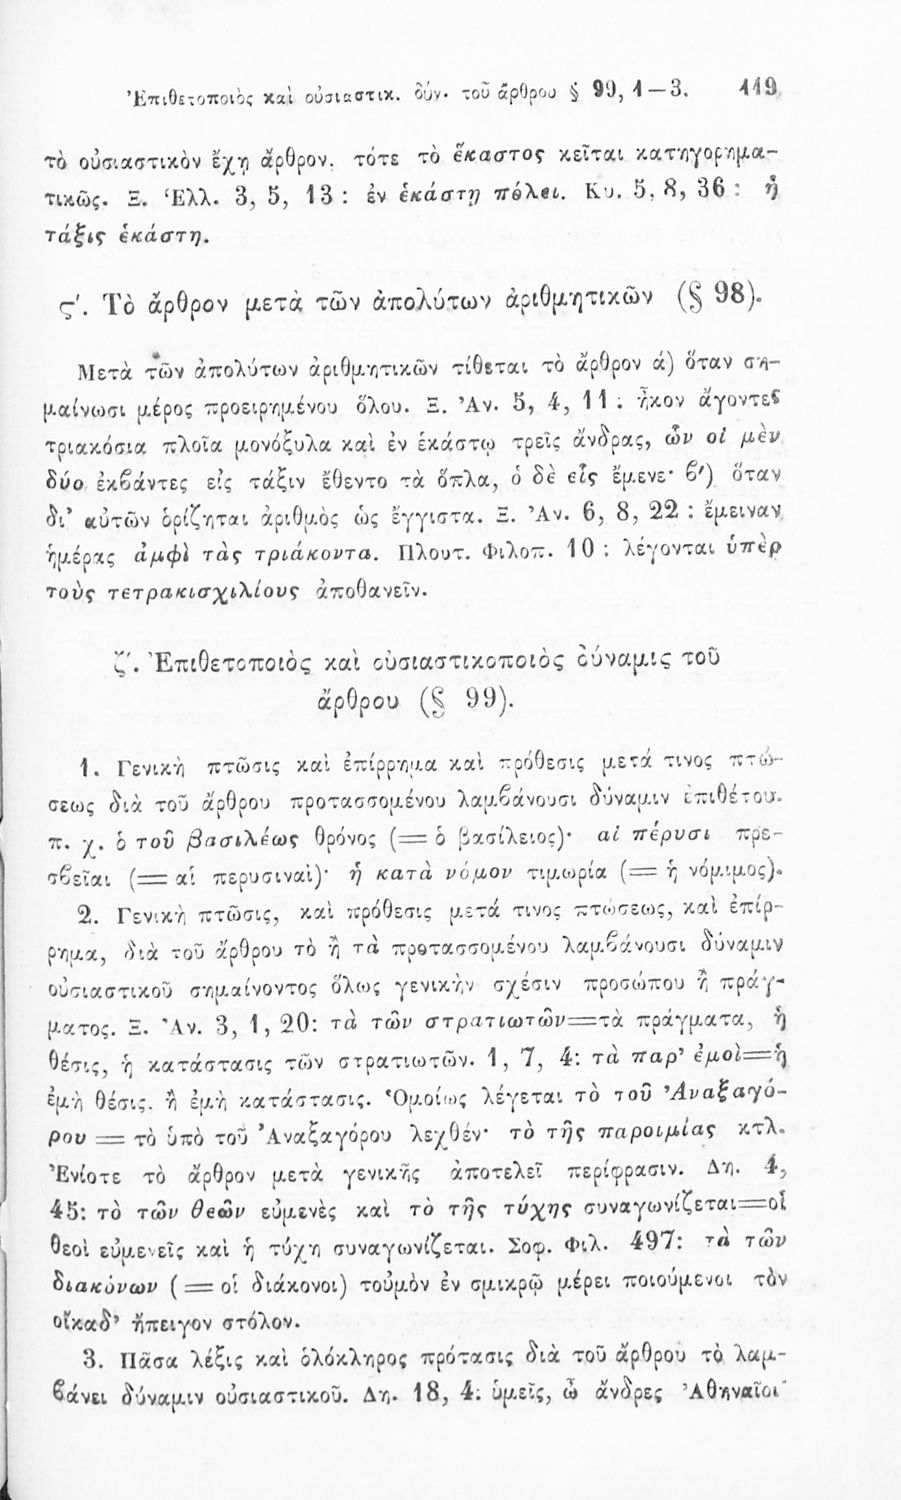 Ἐπιθετοποιὸς καὶ οὐσιαστικ. δύν. τοῦ ἄρθρου § 99, 1—3. 119
τὸ οὐσιαστικὸν ἔχῃ ἄρθρον, τότε τὸ ἕκαστος κεῖται κατηγορημα-
τικῶς. Ξ. Ἑλλ. 3, 5, 13 : ἐν ἑκάστῃ πόλει. Κυ. 5, 8, 36 : ἡ
τάξις ἑκάστη.
ς′. Τὸ ἄρθρον μετὰ τῶν ἀπολύτων ἀριθμητικῶν (§ 98).
Μετὰ τῶν ἀπολύτων ἀριθμητικῶν τίθεται τὸ ἄρθρον ά) ὅταν ση-
μαίνωσι μέρος προειρημένου ὅλου. Ξ. Ἀν. 5, 4, 11 : ἧκον ἄγοντες
τριακόσια πλοῖα μονόξυλα καὶ ἐν ἑκάστῳ τρεῖς ἄνδρας, ὧν οἱ μὲν
δύο ἐκβάντες εἰς τάξιν ἔθεντο τὰ ὅπλα, ὁ δὲ εἷς ἔμενε· β′) ὅταν
δι’ αὐτῶν ὁρίζηται ἀριθμὸς ὡς ἔγγιστα. Ξ. Ἀν. 6, 8, 22 : ἔμειναν
ἡμέρας ἀμφὶ τὰς τριάκοντα. Πλουτ. Φιλοπ. 10 : λέγονται ὑπὲρ
τοὺς τετρακισχιλίους ἀποθανεῖν.
ζ′. Ἐπιθετοποιὸς καὶ οὐσιαστικοποιὸς δύναμις τοῦ
ἄρθρου (§ 99).
1. Γενικὴ πτῶσις καὶ ἐπίρρημα καὶ πρόθεσις μετά τινος πτώ-
σεως διὰ τοῦ ἄρθρου προτασσομένου λαμβάνουσι δύναμιν ἐπιθέτου.
π. χ. ὁ τοῦ βασιλέως θρόνος (= ὁ βασίλειος)· αἱ πέρυσι πρε-
σβεῖαι (= αἱ περυσιναὶ)· ἡ κατὰ νόμον τιμωρία (= ἡ νόμιμος).
2. Γενικὴ πτῶσις, καὶ πρόθεσις μετά τινος πτώσεως, καὶ ἐπίρ-
ρημα, διὰ τοῦ ἄρθρου τὸ ἢ τὰ προτασσομένου λαμβάνουσι δύναμιν
οὐσιαστικοῦ σημαίνοντος ὅλως γενικὴν σχέσιν προσώπου ἢ πράγ-
ματος. Ξ. Ἀν. 3, 1, 20: τὰ τῶν στρατιωτῶν=τὰ πράγματα, ἡ
θέσις, ἡ κατάστασις τῶν στρατιωτῶν. 1, 7, 4: τὰ παρ’ ἐμοὶ=ἡ
ἐμὴ θέσις, ἢ ἐμὴ κατάστασις. Ὁμοίως λέγεται τὸ τοῦ Ἀναξαγό-
ρου = τὸ ὑπὸ τοῦ Ἀναξαγόρου λεχθέν· τὸ τῆς παροιμίας κτλ.
Ἐνίοτε τὸ ἄρθρον μετὰ γενικῆς ἀποτελεῖ περίφρασιν. Δη. 4,
45: τὸ τῶν θεῶν εὐμενὲς καὶ τὸ τῆς τύχης συναγωνίζεται=οἱ
θεοὶ εὐμενεῖς καὶ ἡ τύχη συναγωνίζεται. Σοφ. Φιλ. 497: τὰ τῶν
διακόνων (= οἱ διάκονοι) τοὐμὸν ἐν σμικρῷ μέρει ποιούμενοι τὸν
οἴκαδ’ ἤπειγον στόλον.
3. Πᾶσα λέξις καὶ ὁλόκληρος πρότασις διὰ τοῦ ἄρθρου τὸ λαμ-
βάνει δύναμιν οὐσιαστικοῦ. Δη. 18, 4: ὑμεῖς, ὦ ἄνδρες Ἀθηναῖοι